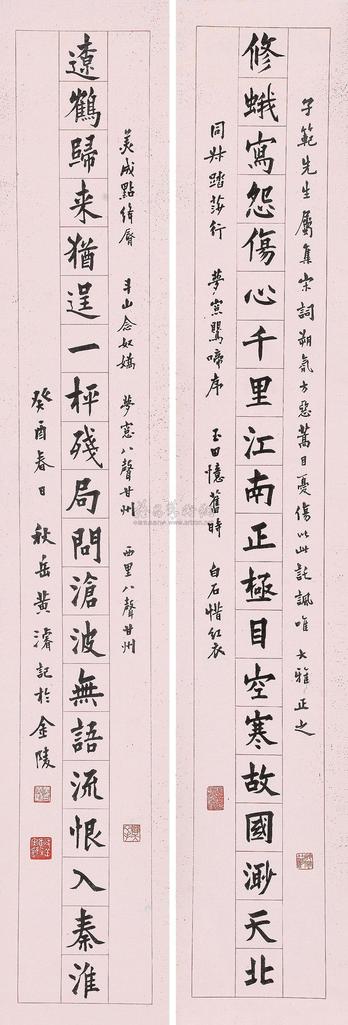 子範先生屬集宋詞朔氣方惡蒿目憂傷以此託諷唯大雅正之
修蛾寫怨傷心千里江南正極目空寒故國渺天北
同叔踏莎行 夢窓鶯啼序 玉田憶舊時 白石惜紅衣
美成點絳脣 斗山念奴嬌 夢窓八聲甘州 西里八聲甘州
遼鶴歸来猶逞一枰殘局問滄波無語流恨入秦淮
癸酉春日秋岳黃濬記於金陵